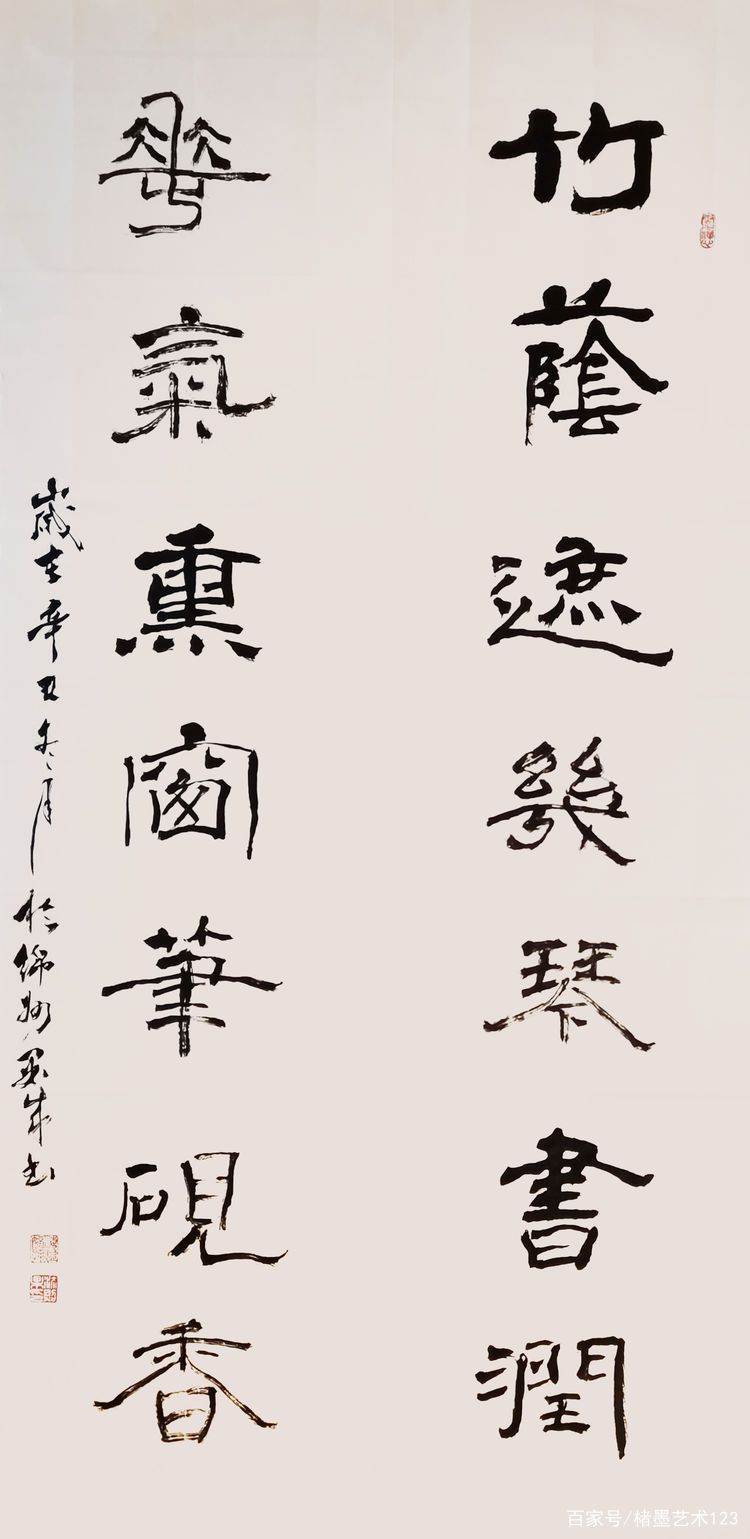 竹蔭遮幾琴書潤
華氣熏窗筆硯香
歲在辛丑冬月於綿州墨成书
百家号/楮墨艺术123